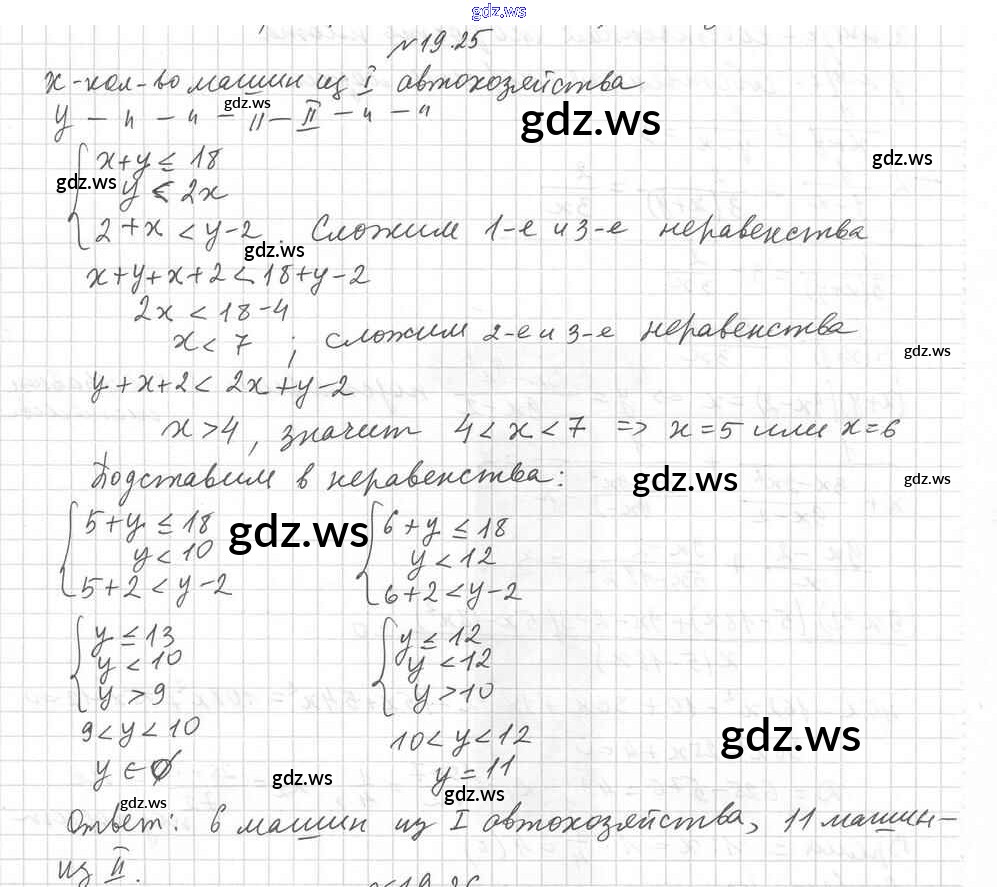 gdz.ws
№19.25
x - кол-во машин из I автохозяйства
y - " - " - " - II - " - "
gdz.ws
gdz.ws
gdz.ws
x+y ≤ 18
gdz.ws
y < 2x
2+x < y-2. Сложим 1-е и 3-е неравенства
gdz.ws
x+y+x+2 < 18+y-2
2x < 18-4
x < 7 ; сложим 2-е и 3-е неравенства
gdz.ws
y+x+2 < 2x+y-2
x > 4, значит 4 < x < 7 => x=5 или x=6
Подставим в неравенства:
gdz.ws
gdz.ws
5+y ≤ 18 gdz.ws 6+y ≤ 18
y < 10 y < 12
5+2 < y-2 6+2 < y-2
y ≤ 13 y ≤ 12
y < 10 y < 12
y > 9 y > 10
9 < y < 10 10 < y < 12
gdz.ws
y ∈ ∅ y = 11
gdz.ws
gdz.ws
gdz.ws
Ответ: 6 машин из I автохозяйства, 11 машин-
из II.